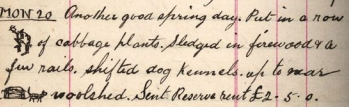 MON 20 Another good spring day. Put in a row
of cabbage plants. Sledged in firewood & a
few rails. Shifted dog kennels up to near
woolshed. Sent Reserve rent £2-5-0.